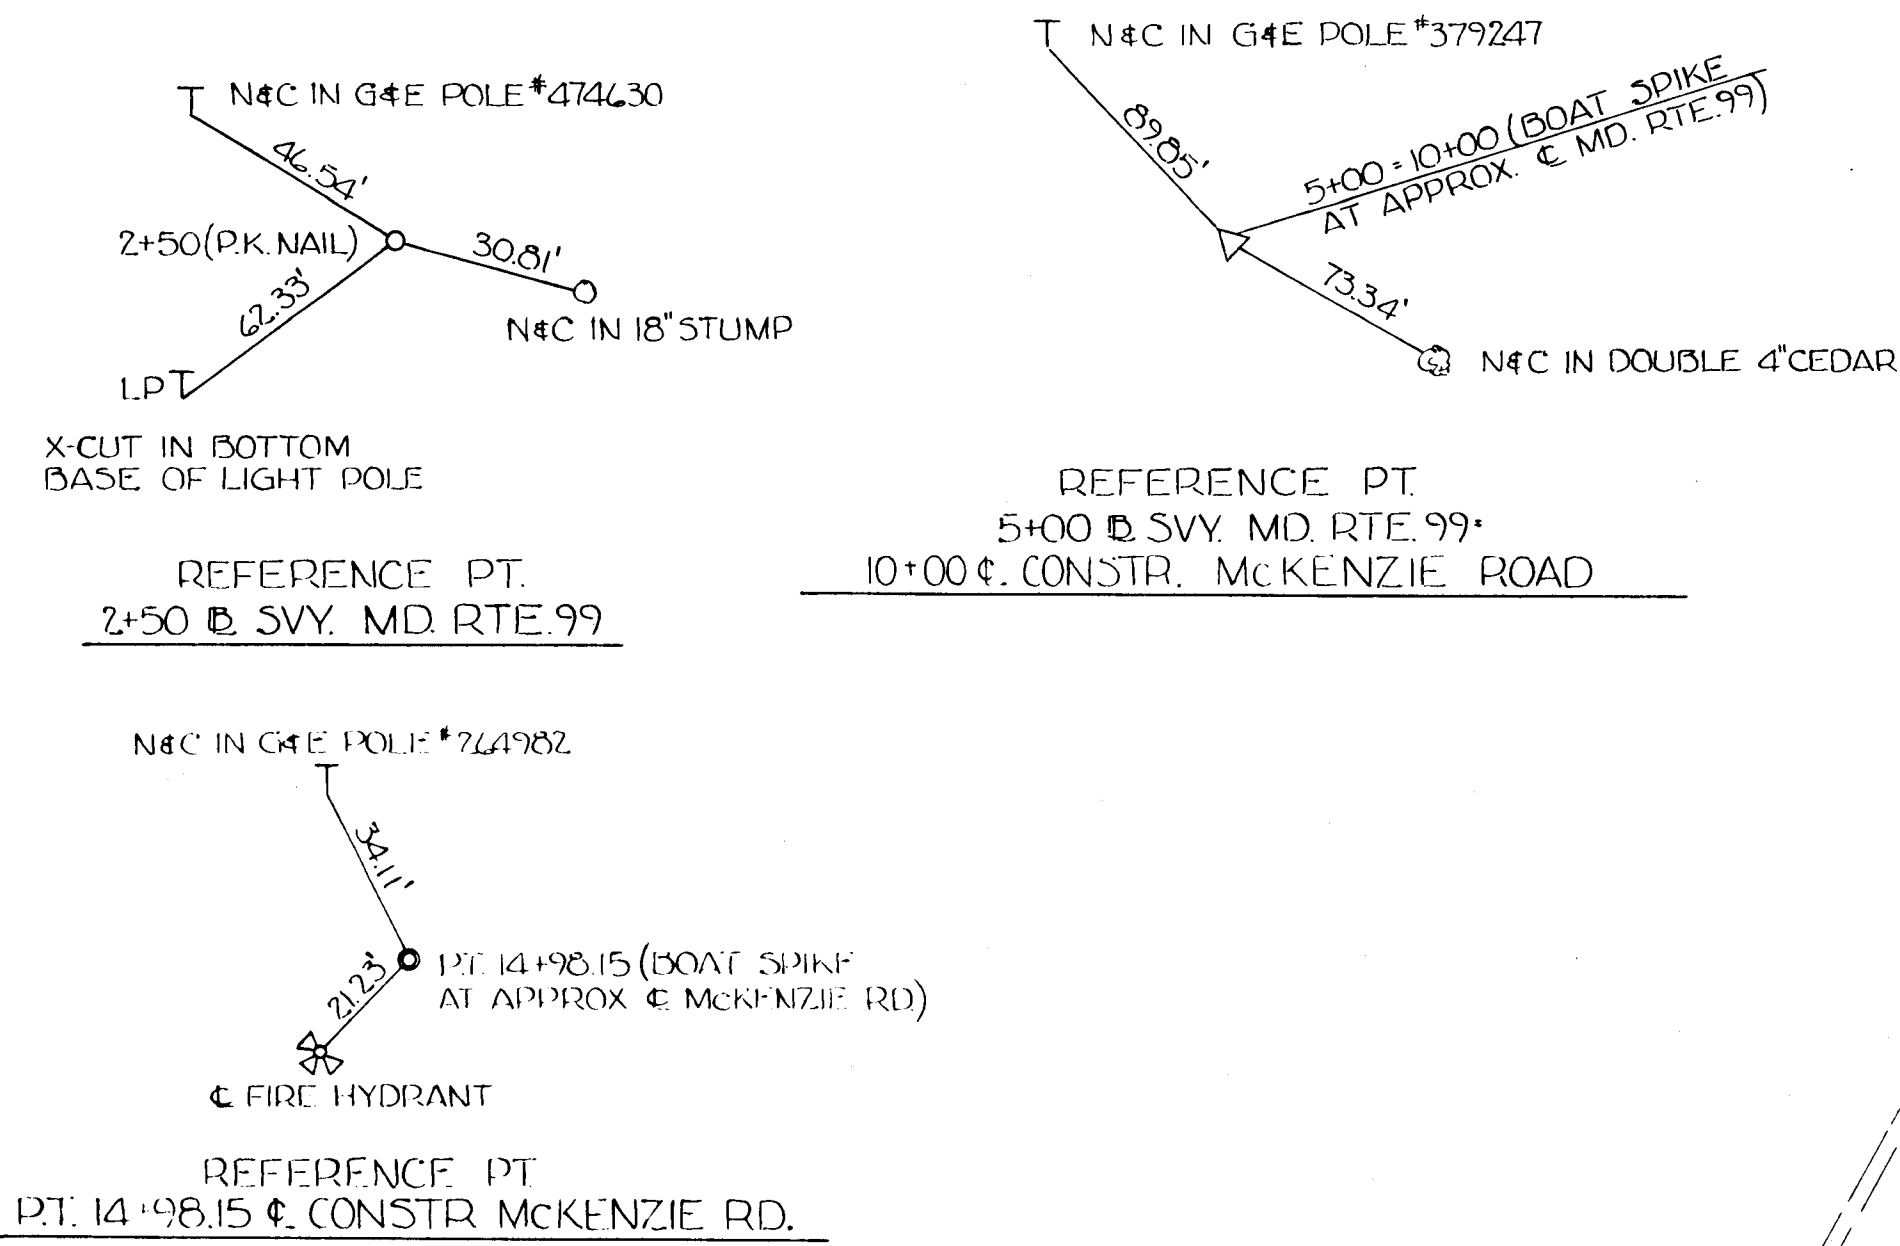 N&C IN G&E POLE #474630
46.54'
2+50 (P.K. NAIL)
30.81'
62.33'
N&C IN 18" STUMP
LP
X-CUT IN BOTTOM
BASE OF LIGHT POLE
REFERENCE PT.
2+50 B SVY. MD. RTE. 99
N&C IN G&E POLE #379247
89.85'
5+00 = 10+00 (BOAT SPIKE
AT APPROX. ℄ MD. RTE. 99)
73.34'
N&C IN DOUBLE 4" CEDAR
REFERENCE PT.
5+00 B SVY. MD. RTE. 99 =
10+00 ℄. CONSTR. McKENZIE ROAD
N&C IN G&E POLE
34.11'
21.23'
P.T. 14+98.15 (BOAT SPIKE
AT APPROX ℄ McKENZIE RD.)
℄ FIRE HYDRANT
REFERENCE PT
P.T. 14+98.15 ℄ CONSTR McKENZIE RD.